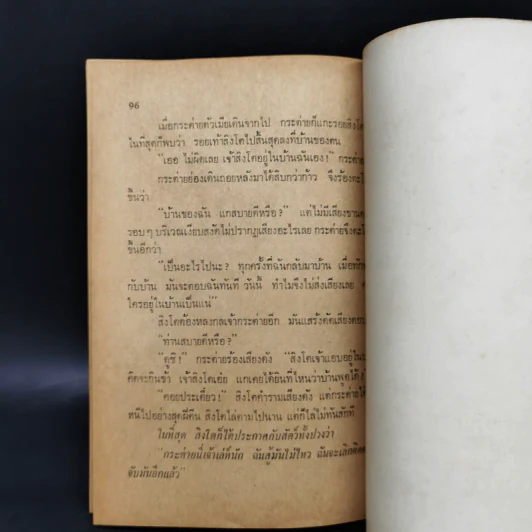 96
เมื่อกระต่ายตัวเมียเดินจากไป กระต่ายก็แกะรอยสิงโต
ในที่สุดก็พบว่า รอยเท้าสิงโตไปสิ้นสุดลงที่บ้านของตน
"เออ ไม่ผิดเลย เจ้าสิงโตอยู่ในบ้านฉันเอง!" กระต่าย
กระต่ายย่องเดินถอยหลังมาได้สิบกว่าก้าว จึงร้องตะโ
ขึ้นว่า
"บ้านของฉัน แกสบายดีหรือ?" แต่ไม่มีเสียงขานต
รอบๆ บริเวณเงียบสงัดไม่ปรากฏเสียงอะไรเลย กระต่ายจึงตะโ
ขึ้นอีกว่า
"เป็นอะไรไปนะ? ทุกครั้งที่ฉันกลับมาบ้าน เมื่อทัก
กับบ้าน มันจะตอบฉันทันที วันนี้ ทำไมจึงไม่ส่งเสียงเลย
ใครอยู่ในบ้านเป็นแน่"
สิงโตต้องหลงกลเจ้ากระต่ายอีก มันแสร้งดัดเสียง
"ท่านสบายดีหรือ?"
"ดูซิ!" กระต่ายร้องเสียงดัง "สิงโตเจ้าแอบอยู่ใน
คิดจะกินข้า เจ้าสิงโตเอ๋ย แกเคยได้ยินที่ไหนว่าบ้านพูดได้
"คอยประเดี๋ยว!" สิงโตคำรามเสียงดัง แต่กระต่ายได้
หนีไปอย่างสุดฝีตีน สิงโตไล่ตามไปนาน แต่ก็ไล่ไม่ทันสักที
ในที่สุด สิงโตก็ได้ประกาศกับสัตว์ทั้งปวงว่า
"กระต่ายนี่เจ้าเล่ห์นัก ฉันสู้มันไม่ไหว ฉันจะเลิกคิด
จับมันอีกแล้ว"